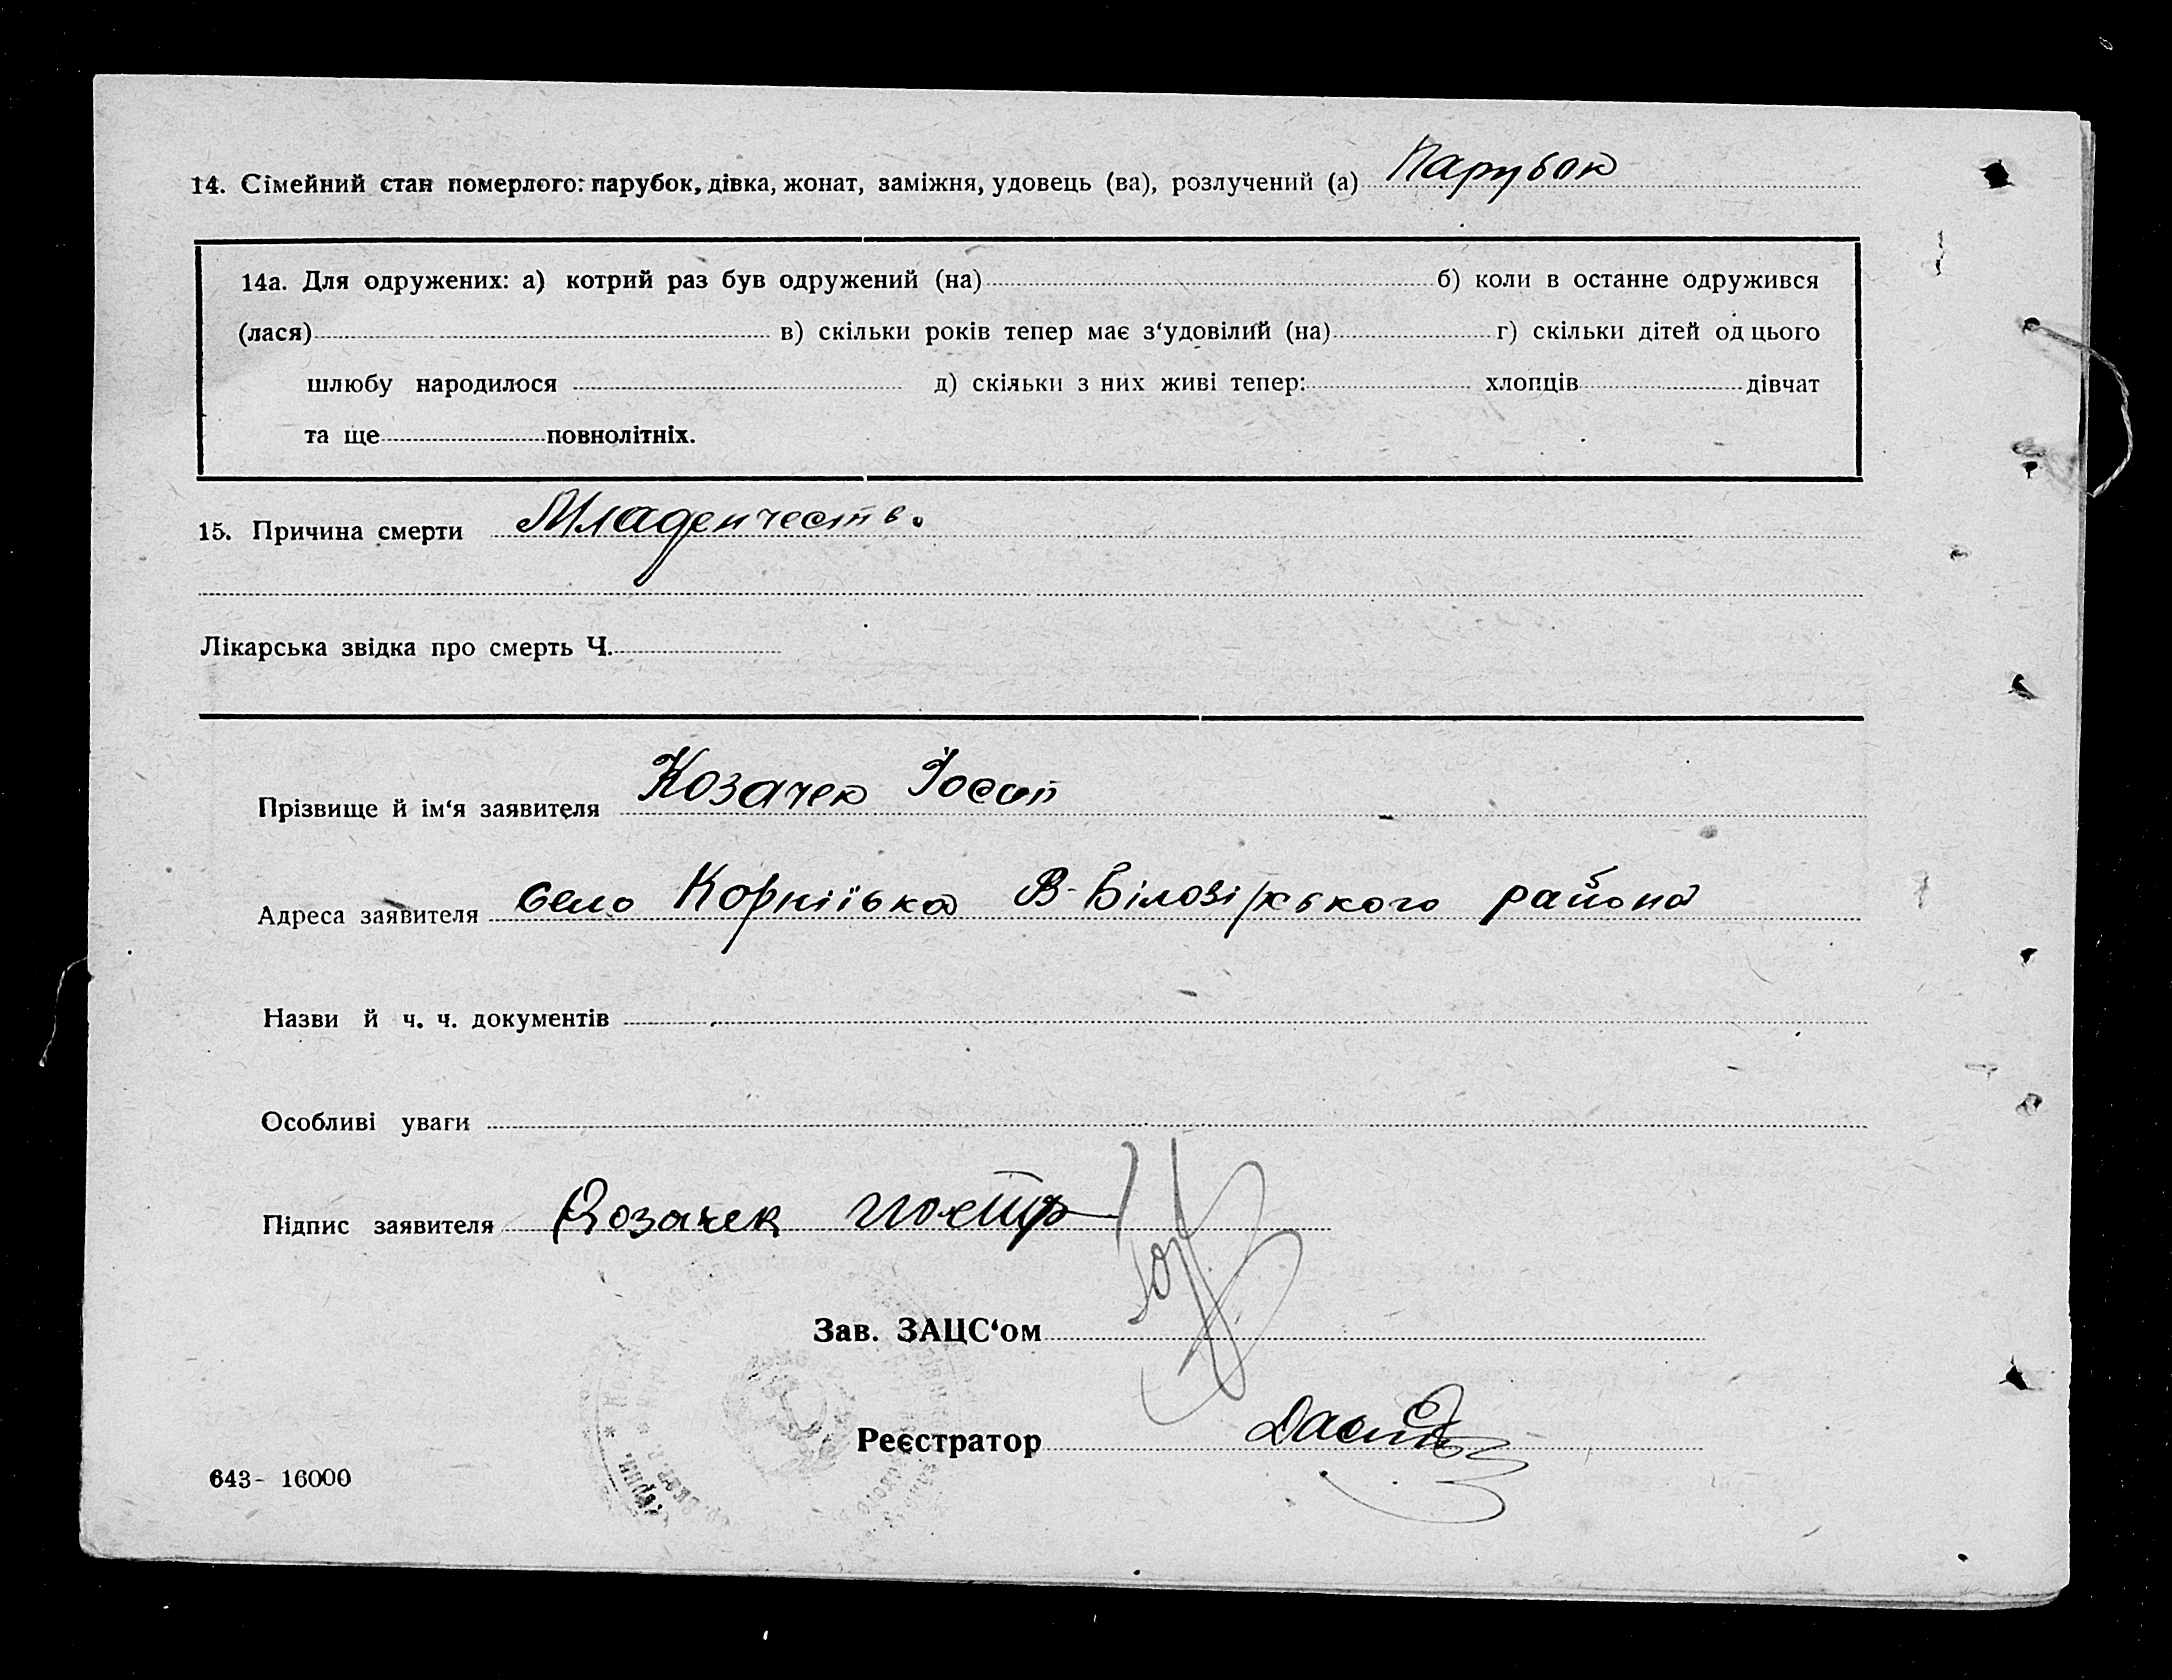 14. Сімейний стан померлого: парубок, дівка, жонат, заміжня, удовець (ва), розлучений (а) Парубок
14а. Для одружених: а) котрий раз був одружений (на) б) коли в останне одружився
(лася) в) скільки років тепер має з‘удовілий (на) г) скільки дітей од цього
шлюбу народилося д) скільки з них живі тепер: хлопців дівчат
та ще повнолітніх.
15. Причина смерти Младенчеств.
Лікарська звідка про смерть Ч.
Прізвище й ім‘я заявителя Козачек Йосип
Адреса заявителя село Корніївка В-Білозірського района
Назви й ч. ч. документів
Особливі уваги
Підпис заявителя Козачек
Зав. ЗАЦС‘ом
Реєстратор
643- 16000